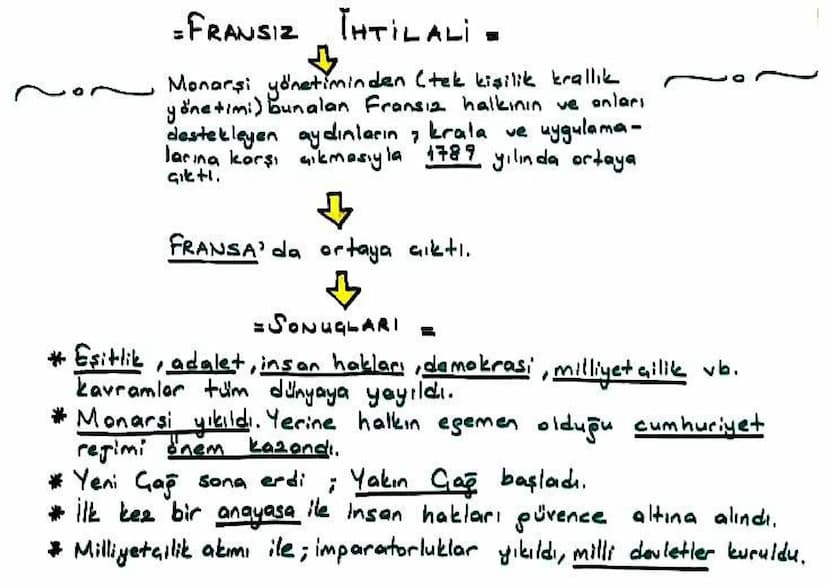 =FRANSIZ İHTİLALİ=
Monarşi yönetiminden (tek kişilik krallık
yönetimi) bunalan Fransız halkının ve onları
destekleyen aydınların, krala ve uygulama-
larına karşı çıkmasıyla 1789 yılında ortaya
çıktı.
FRANSA'da ortaya çıktı.
=SONUÇLARI=
* Eşitlik, adalet, insan hakları, demokrasi, milliyetçilik vb.
kavramlar tüm dünyaya yayıldı.
* Monarşi yıkıldı. Yerine halkın egemen olduğu cumhuriyet
rejimi önem kazandı.
* Yeni Çağ sona erdi; Yakın Çağ başladı.
* İlk kez bir anayasa ile insan hakları güvence altına alındı.
* Milliyetçilik akımı ile; imparatorluklar yıkıldı, milli devletler kuruldu.